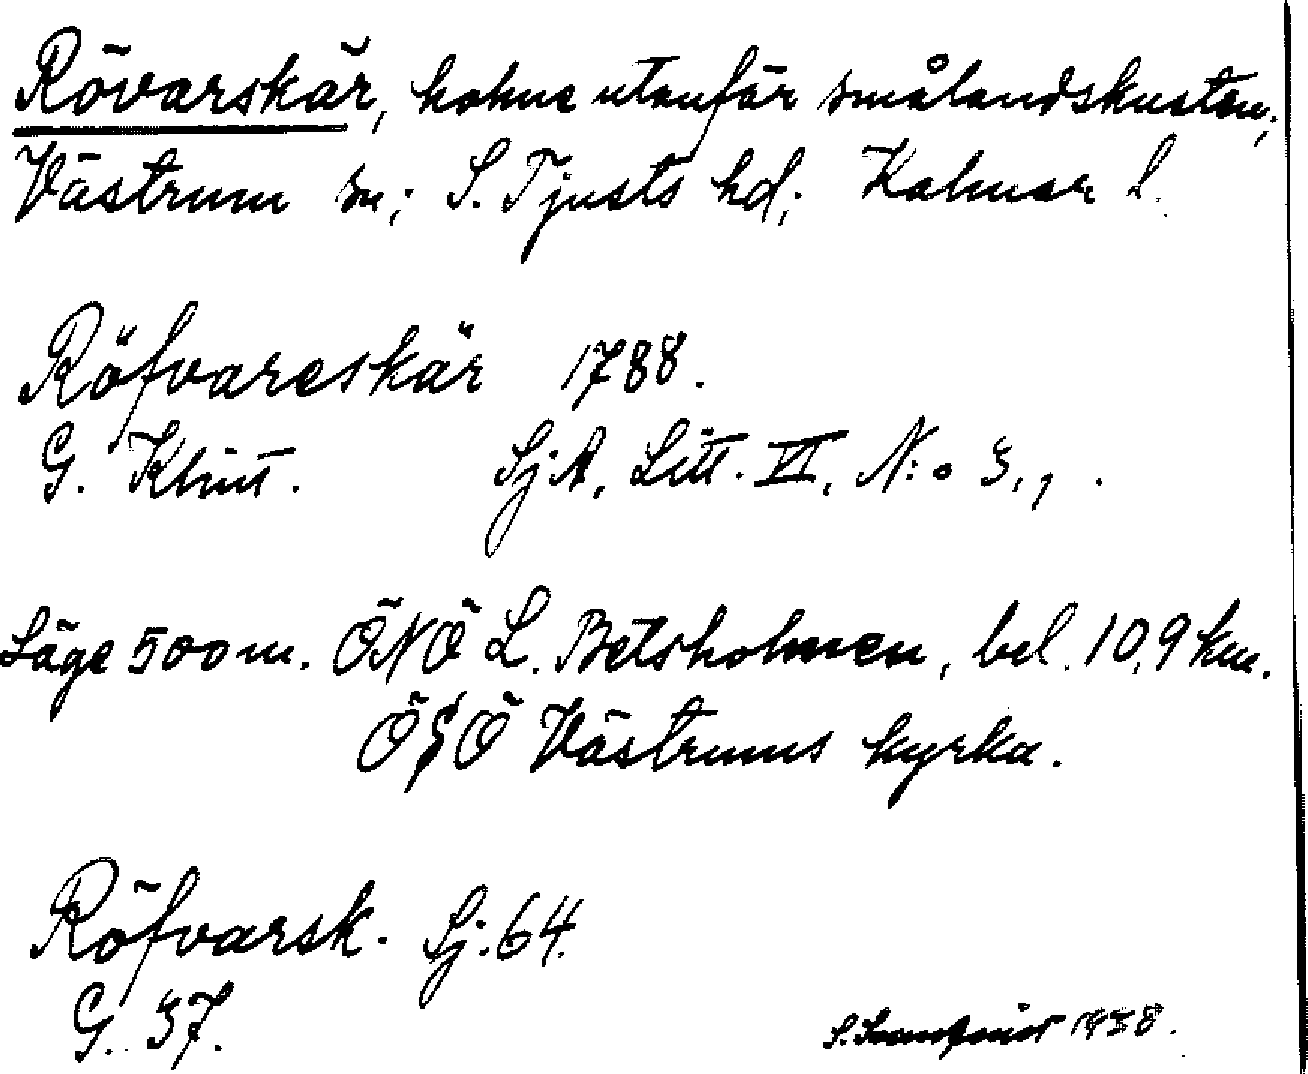 Rövarskär, holme utanför smålandskusten,
Västrum sn; S. Tjusts hd; Kalmar l.
Röfvareskär 1788.
G. Klint. Sj.A, Litt. VI, N:o 3,, .
Läge 500 m. ÖNÖ L. Betsholmen, bel. 10,9 km.
ÖSÖ Västrums kyrka.
Röfvarsk. Sj. 64.
G. 37.
1938.